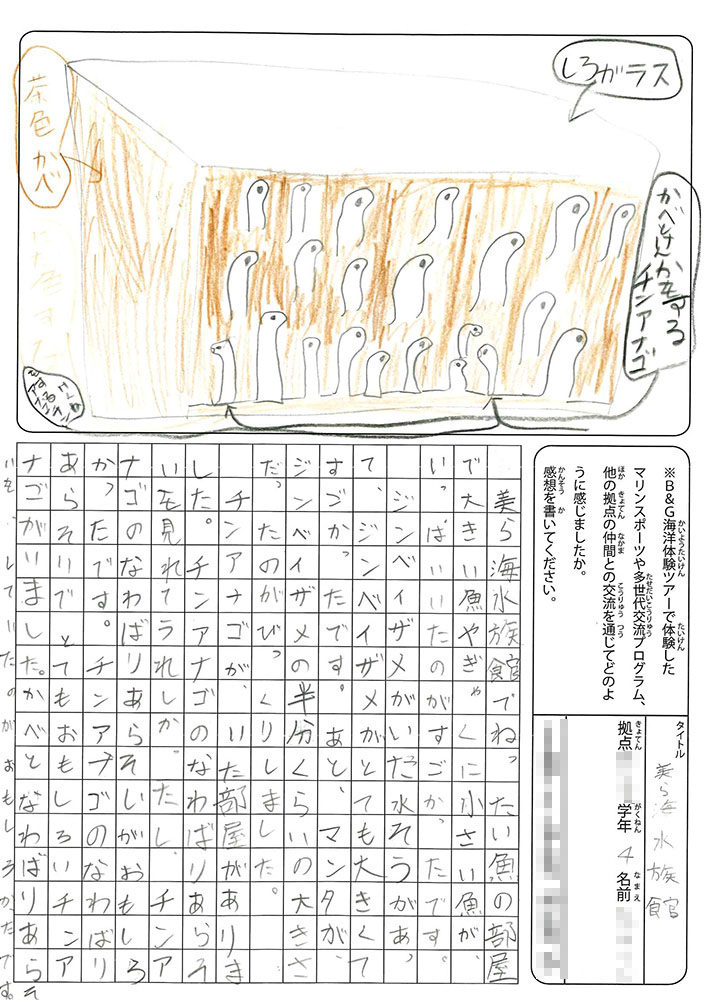 しろガラス
茶色かべ
かべとけんかをする
チンアナゴ
※B&G海洋体験ツアーで体験した
マリンスポーツや多世代交流プログラム、
他の拠点の仲間との交流を通じてどのよ
うに感じましたか。
感想を書いてください。
タイトル
美ら海水族館
拠点
学年 4 名前
美ら海水族館でねったい魚の部屋
で大きい魚やぎゃくに小さい魚が、
いっぱいいたのがすごかったです。
ジンベイザメがいだ水そうがあっ
て、ジンベイザメがとても大きくて
すごかったです。あと、マンタが、
ジンベイザメの半分くらいの大きさ
だったのがびっくりしました。
チンアナゴが、いた部屋がありま
した。チンアナゴのなわばりあらそ
いを見れてうれしかったし、チンア
ナゴのなわばりあらそいがおもしろ
かったです。チンアナゴのなわばり
あらそいで、とてもおもしろいチンア
ナゴがいました。かべとなわばりあらそ
いをしていたのがおもしろかったです。